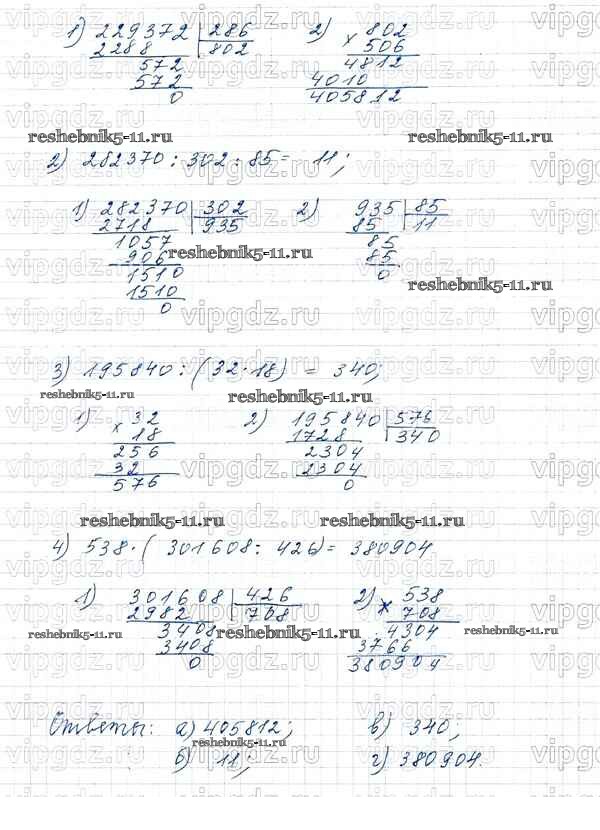 1) 229372 | 286 2) 802
2288 802 × 506
572 4812
572 4010
0 405812
reshebnik5-11.ru reshebnik5-11.ru
2) 282370 : 302 : 85 = 11;
1) 282370 | 302 2) 935 | 85
2718 935 85 11
1057 85
906 85
1510 0
1510
0
reshebnik5-11.ru
reshebnik5-11.ru
3) 195840 : (32 · 18) = 340;
reshebnik5-11.ru reshebnik5-11.ru
1) 32 2) 195840 | 576
× 18 1728 340
256 2304
32 2304
576 0
reshebnik5-11.ru reshebnik5-11.ru
4) 538 · (301608 : 426) = 380904
1) 301608 | 426 2) 538
2982 708 × 708
3408 4304
3408 3766
0 380904
reshebnik5-11.ru reshebnik5-11.ru reshebnik5-11.ru
Ответы: а) 405812; в) 340;
reshebnik5-11.ru
б) 11; г) 380904.
vipgdz.ru